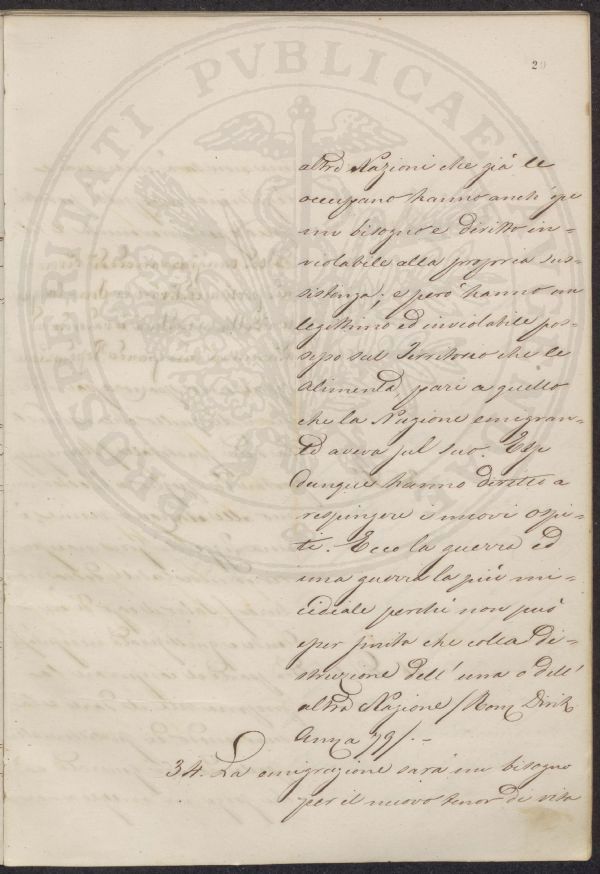 20
PROSPERITATI PVBLICAE AVGENDAE
altre Nazioni che già le
occupano hanno anch'esse
un bisogno e diritto in-
violabile alla propria sus-
sistenza; e però hanno un
legittimo ed inviolabile pos-
sesso sul Territorio che le
alimenta, pari a quello
che la Nazione emigran-
te aveva sul suo. Esse
dunque hanno diritto a
respingere i nuovi ospi-
ti. Ecco la guerra ed
una guerra la più mi-
cidiale perché non può
esser finita che colla di-
struzione dell'una o dell'
altra Nazione /Rom, Dirit.
79/. -
34. La emigrazione sarà un bisogno
per il nuovo tenor di vita